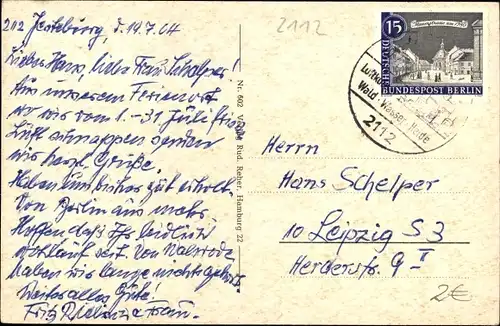 212 Jesteburg, d. 19.7.64
Liebes Hans, liebes Frau Schelper!
Aus unserem Ferienort
wo wir vom 1.-31 Juli frische
Luft schnappen senden
wir herzl. Grüße.
Haben uns bisher gut erholt.
Von Berlin aus mehr.
Hoffen daß Ihr
wohlauf seid. Von
haben wir lange nichts gehört.
Weiter alles Gute!
Fritz u. Frau.
Nr. 602 Verlag Rud. Reher, Hamburg 22
2112
15
DEUTSCHE
BUNDESPOST BERLIN
Luftkurort
Wald Wasser Heide
2112
Herrn
Hans Schelper
10 Leipzig S3
Herderstr. 9 II
2€